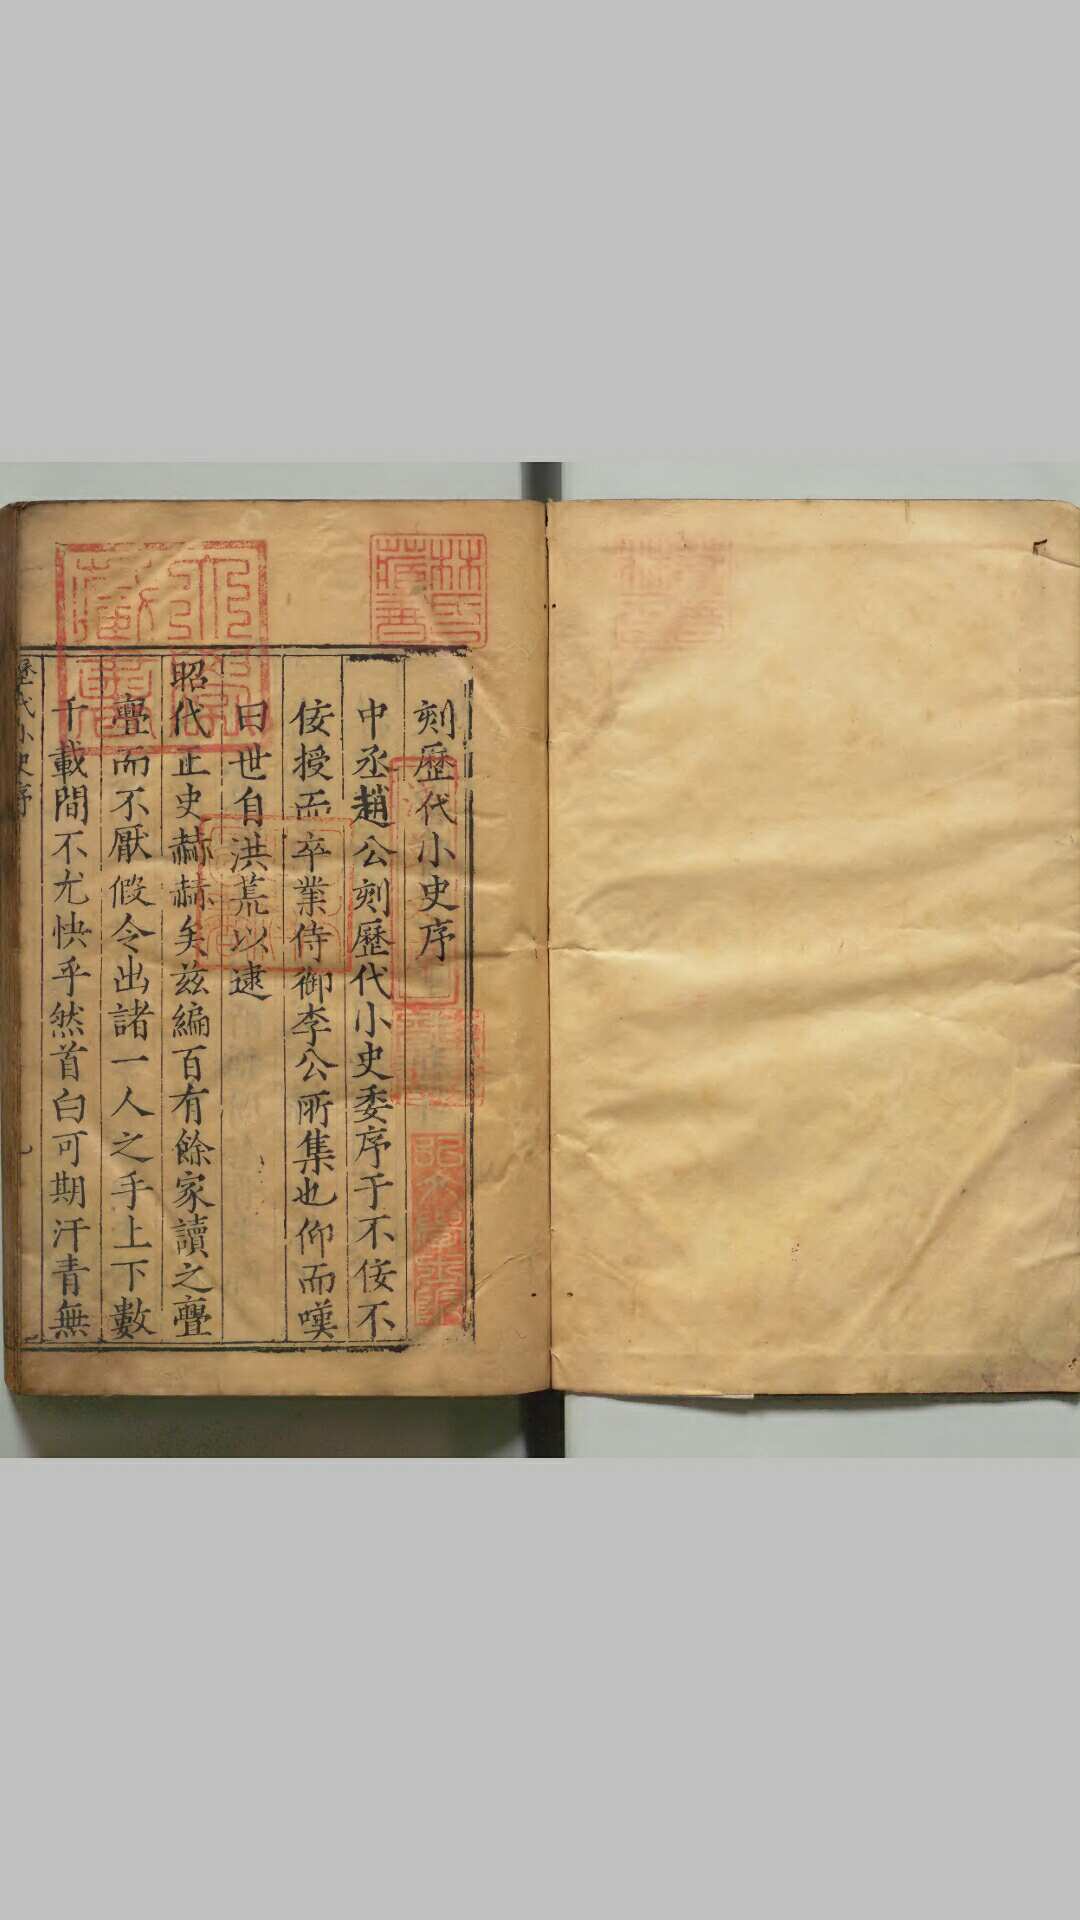 刻歷代小史序
中丞趙公刻歷代小史委序于不佞不
佞授而卒業侍御李公所集也仰而嘆
曰世自洪荒以逮
昭代正史赫赫矣兹編百有餘家讀之亹
亹而不厭假令出諸一人之手上下數
千載間不尤怏乎然首白可期汗青無
歷代小史序
林氏藏書
昭和學士院